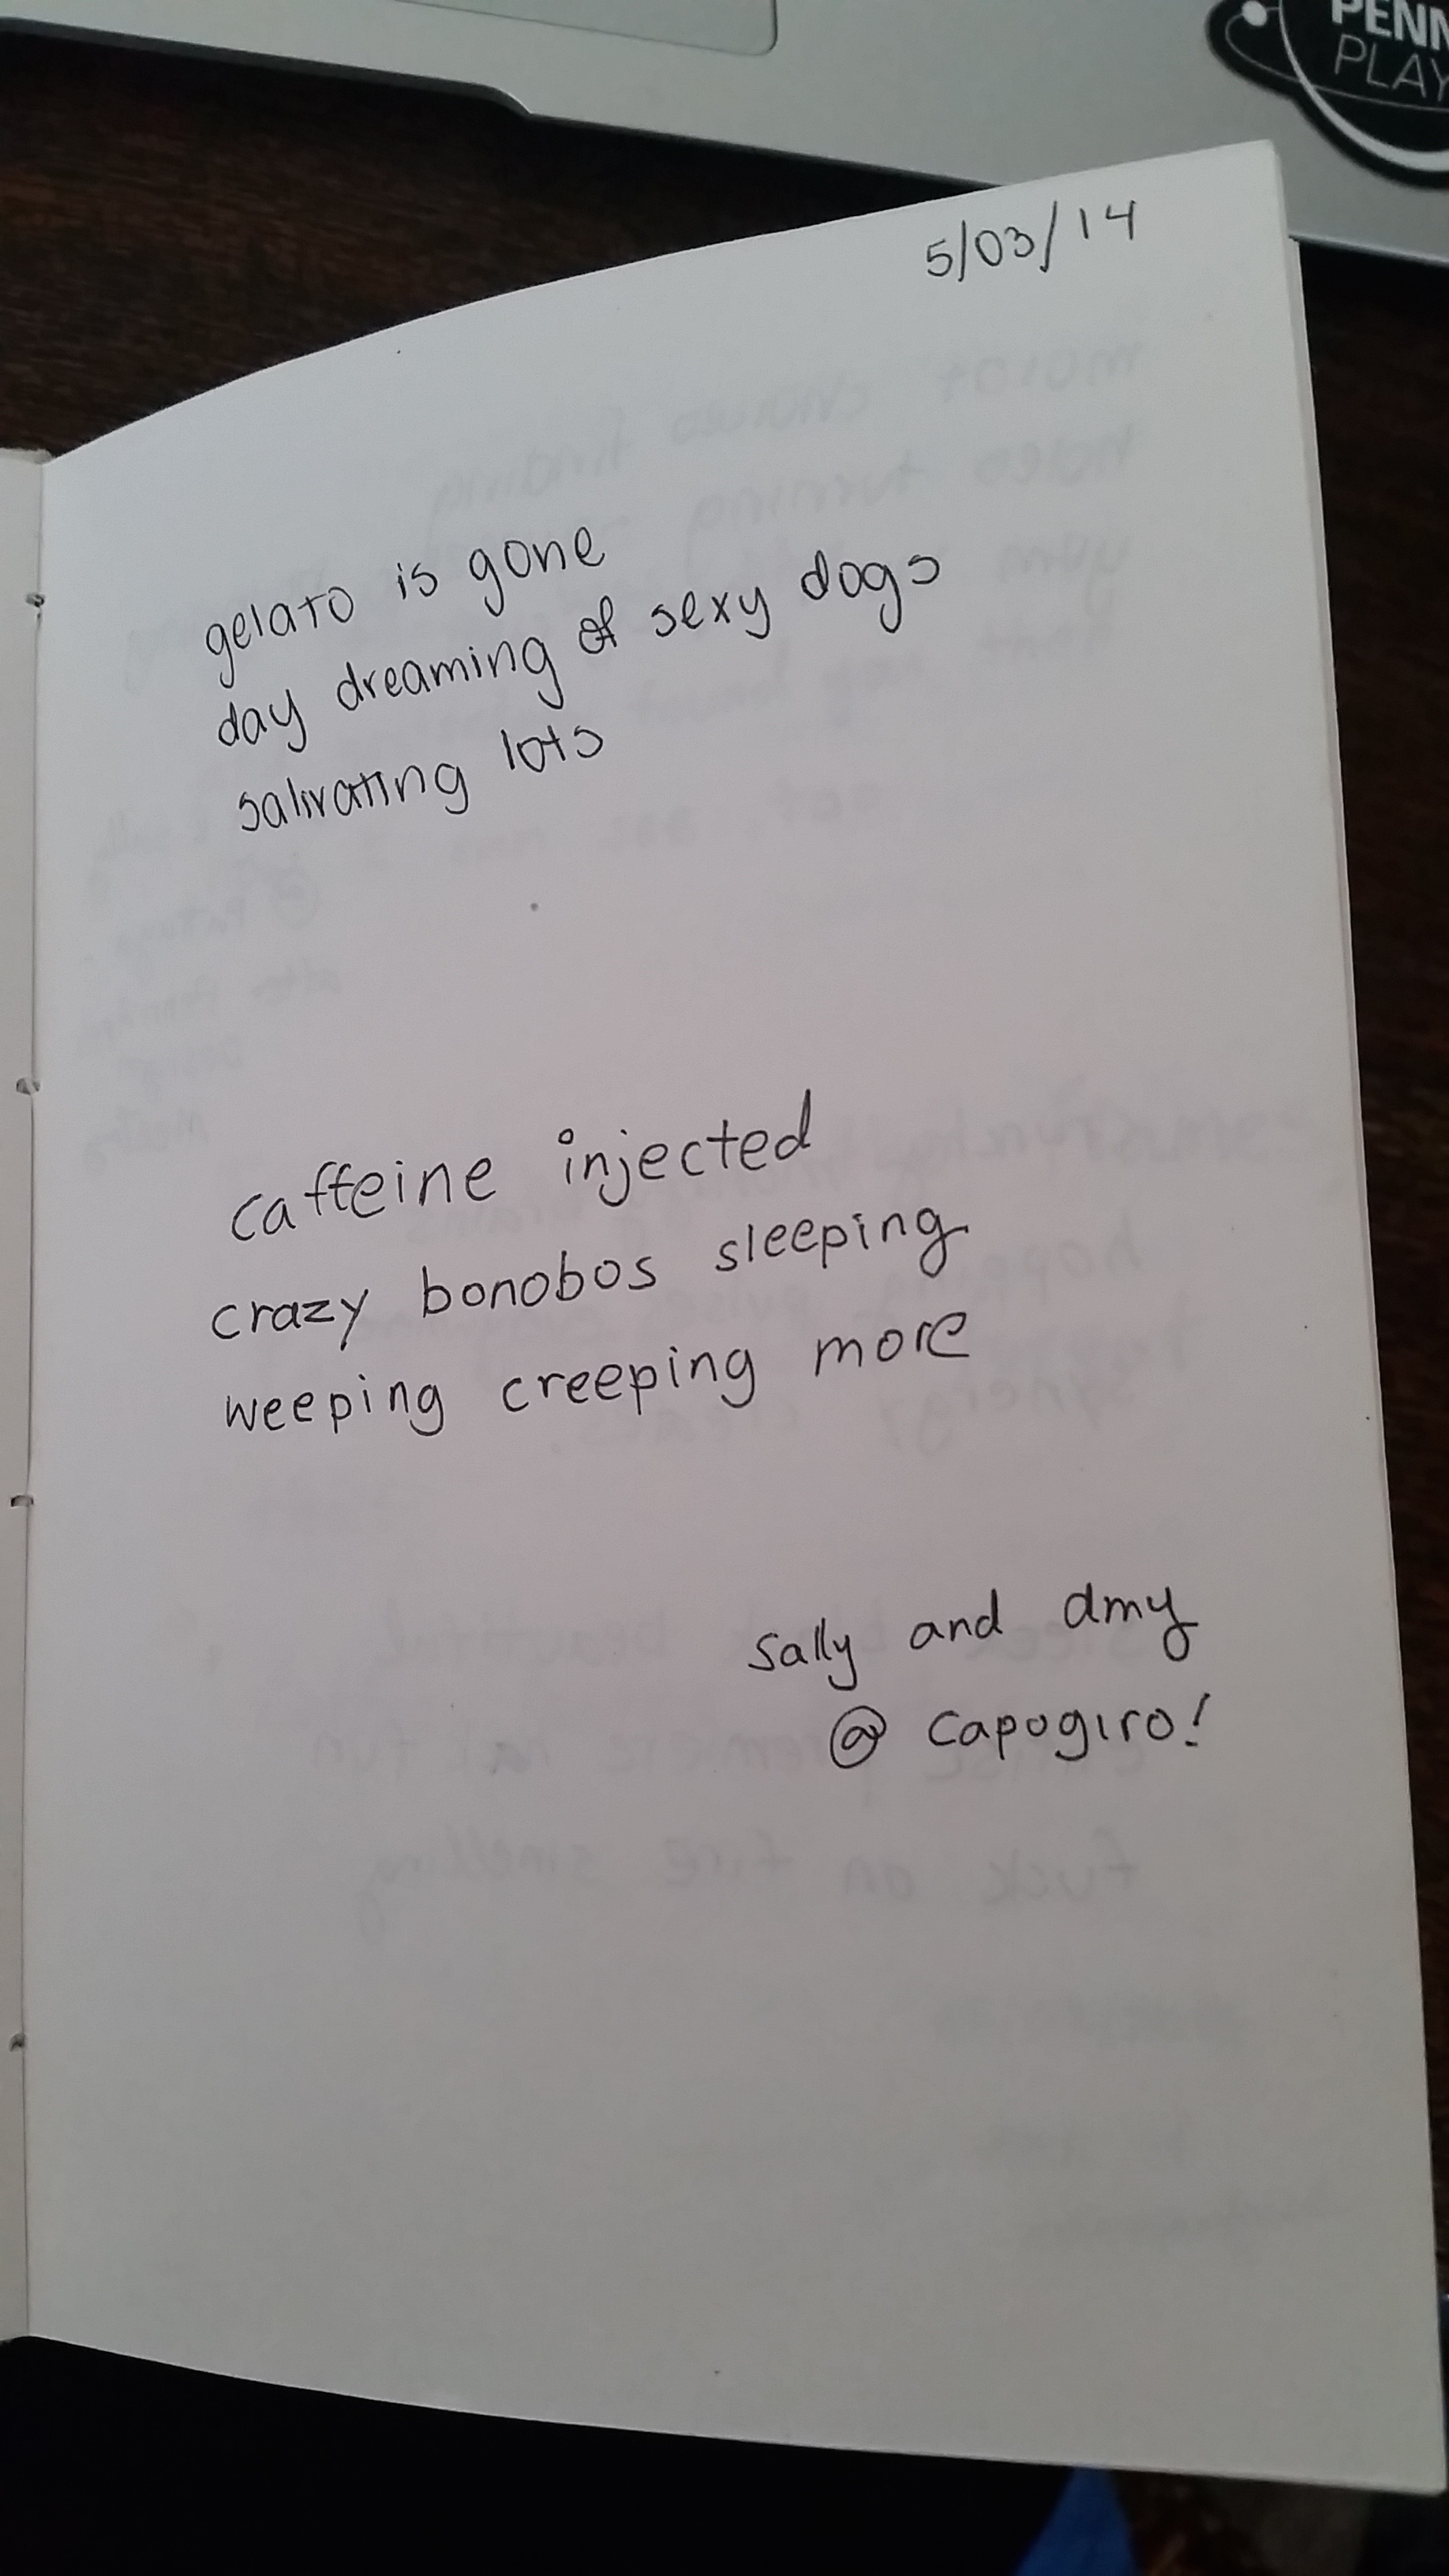 PENN
PLAY
5/03/14
gelato is gone
day dreaming of sexy dogs
salivating lots
caffeine injected
crazy bonobos sleeping
weeping creeping more
Sally and Amy
@ Capogiro!